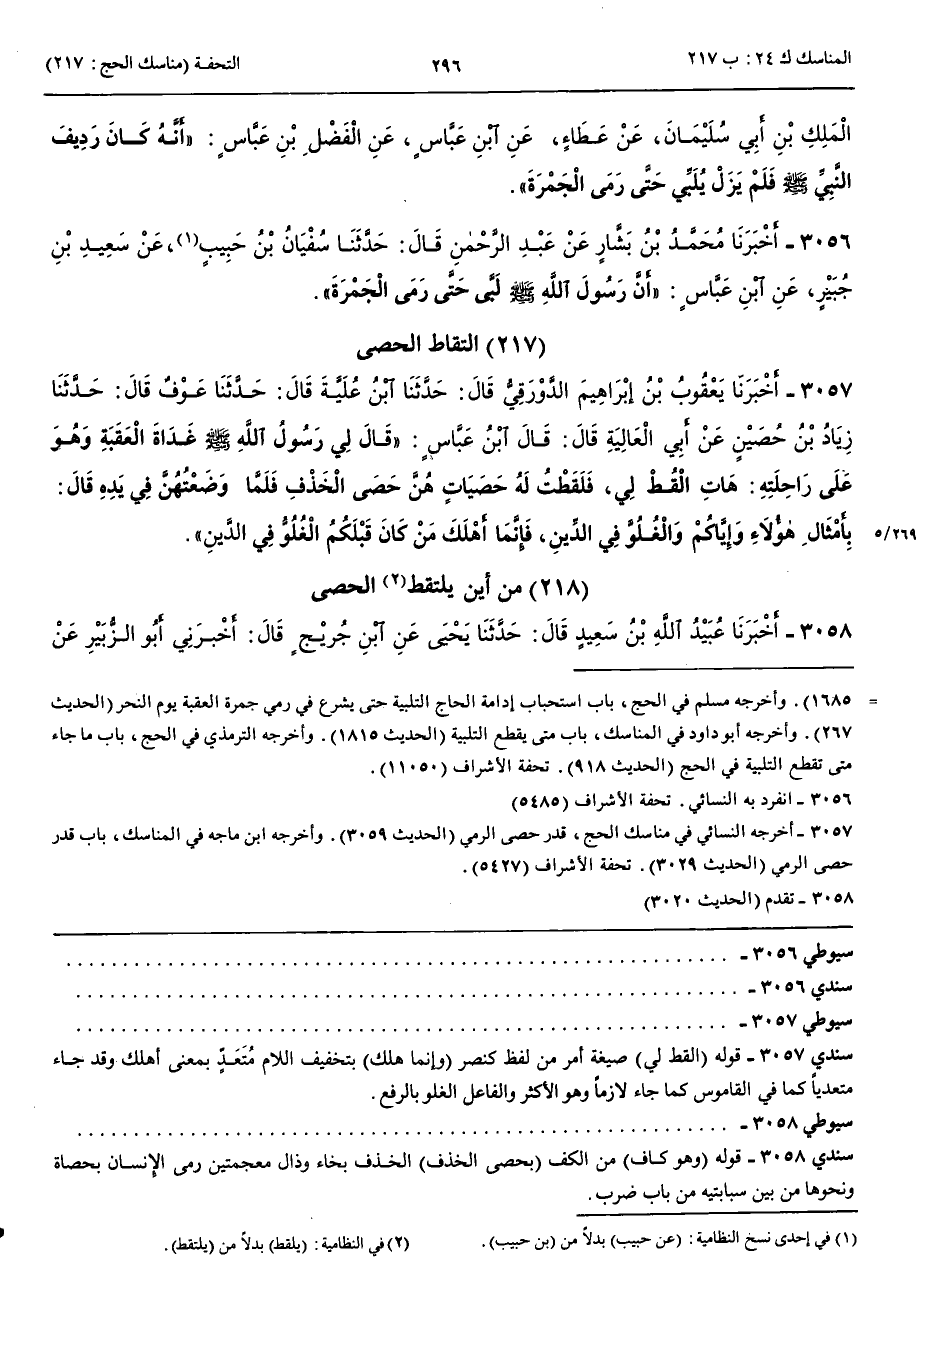 المناسك ك ٢٤: ب ٢١٧
٢٩٦
التحفة (مناسك الحج: ٢١٧)
الْمَلِكِ بْنِ أَبِي سُلَيْمَانَ، عَنْ عَطَاءٍ، عَنِ ٱبْنِ عَبَّاسٍ، عَنِ الْفَضْلِ بْنِ عَبَّاسٍ: «أَنَّهُ كَانَ رَدِيفَ
النَّبِيِّ ﷺ فَلَمْ يَزَلْ يُلَبِّي حَتَّى رَمَى الْجَمْرَةَ».
٣٠٥٦ ـ أَخْبَرَنَا مُحَمَّدُ بْنُ بَشَّارٍ عَنْ عَبْدِ الرَّحْمٰنِ قَالَ: حَدَّثَنَا سُفْيَانُ بْنُ حَبِيبٍ(١)، عَنْ سَعِيدِ بْنِ
جُبَيْرٍ، عَنِ ٱبْنِ عَبَّاسٍ: «أَنَّ رَسُولَ ٱللَّهِ ﷺ لَبَّى حَتَّى رَمَى الْجَمْرَةَ».
(٢١٧) التقاط الحصى
٣٠٥٧ ـ أَخْبَرَنَا يَعْقُوبُ بْنُ إِبْرَاهِيمَ الدَّوْرَقِيُّ قَالَ: حَدَّثَنَا ٱبْنُ عُلَيَّةَ قَالَ: حَدَّثَنَا عَوْفٌ قَالَ: حَدَّثَنَا
زِيَادُ بْنُ حُصَيْنٍ عَنْ أَبِي الْعَالِيَةِ قَالَ: قَالَ ٱبْنُ عَبَّاسٍ: «قَالَ لِي رَسُولُ ٱللَّهِ ﷺ غَدَاةَ الْعَقَبَةِ وَهُوَ
عَلَى رَاحِلَتِهِ: هَاتِ الْقُطْ لِي، فَلَقَطْتُ لَهُ حَصَيَاتٍ هُنَّ حَصَى الْخَذْفِ فَلَمَّا وَضَعْتُهُنَّ فِي يَدِهِ قَالَ:
بِأَمْثَالِ هٰؤُلَاءِ وَإِيَّاكُمْ وَالْغُلُوَّ فِي الدِّينِ، فَإِنَّمَا أَهْلَكَ مَنْ كَانَ قَبْلَكُمُ الْغُلُوُّ فِي الدِّينِ».
٥/٢٦٩
(٢١٨) من أين يلتقط(٢) الحصى
٣٠٥٨ ـ أَخْبَرَنَا عُبَيْدُ ٱللَّهِ بْنُ سَعِيدٍ قَالَ: حَدَّثَنَا يَحْيَى عَنِ ٱبْنِ جُرَيْجٍ قَالَ: أَخْبَرَنِي أَبُو الزُّبَيْرِ عَنْ
= ١٦٨٥). وأخرجه مسلم في الحج، باب استحباب إدامة الحاج التلبية حتى يشرع في رمي جمرة العقبة يوم النحر (الحديث
٢٦٧). وأخرجه أبو داود في المناسك، باب متى يقطع التلبية (الحديث ١٨١٥). وأخرجه الترمذي في الحج، باب ما جاء
متى تقطع التلبية في الحج (الحديث ٩١٨). تحفة الأشراف (١١٠٥٠).
٣٠٥٦ ـ انفرد به النسائي. تحفة الأشراف (٥٤٨٥)
٣٠٥٧ ـ أخرجه النسائي في مناسك الحج، قدر حصى الرمي (الحديث ٣٠٥٩). وأخرجه ابن ماجه في المناسك، باب قدر
حصى الرمي (الحديث ٣٠٢٩). تحفة الأشراف (٥٤٢٧).
٣٠٥٨ ـ تقدم (الحديث ٣٠٢٠)
سيوطي ٣٠٥٦ ـ ........................................
سندي ٣٠٥٦ ـ ........................................
سيوطي ٣٠٥٧ ـ ........................................
سندي ٣٠٥٧ ـ قوله (القط لي) صيغة أمر من لفظ كنصر (وإنما هلك) بتخفيف اللام مُتَعَدٍّ بمعنى أهلك وقد جاء
متعدياً كما في القاموس كما جاء لازماً وهو الأكثر والفاعل الغلو بالرفع.
سيوطي ٣٠٥٨ ـ ........................................
سندي ٣٠٥٨ ـ قوله (وهو كاف) من الكف (بحصى الخذف) الخذف بخاء وذال معجمتين رمى الإنسان بحصاة
ونحوها من بين سبابتيه من باب ضرب.
(١) في إحدى نسخ النظامية: (عن حبيب) بدلاً من (بن حبيب).
(٢) في النظامية: (يلقط) بدلاً من (يلتقط).